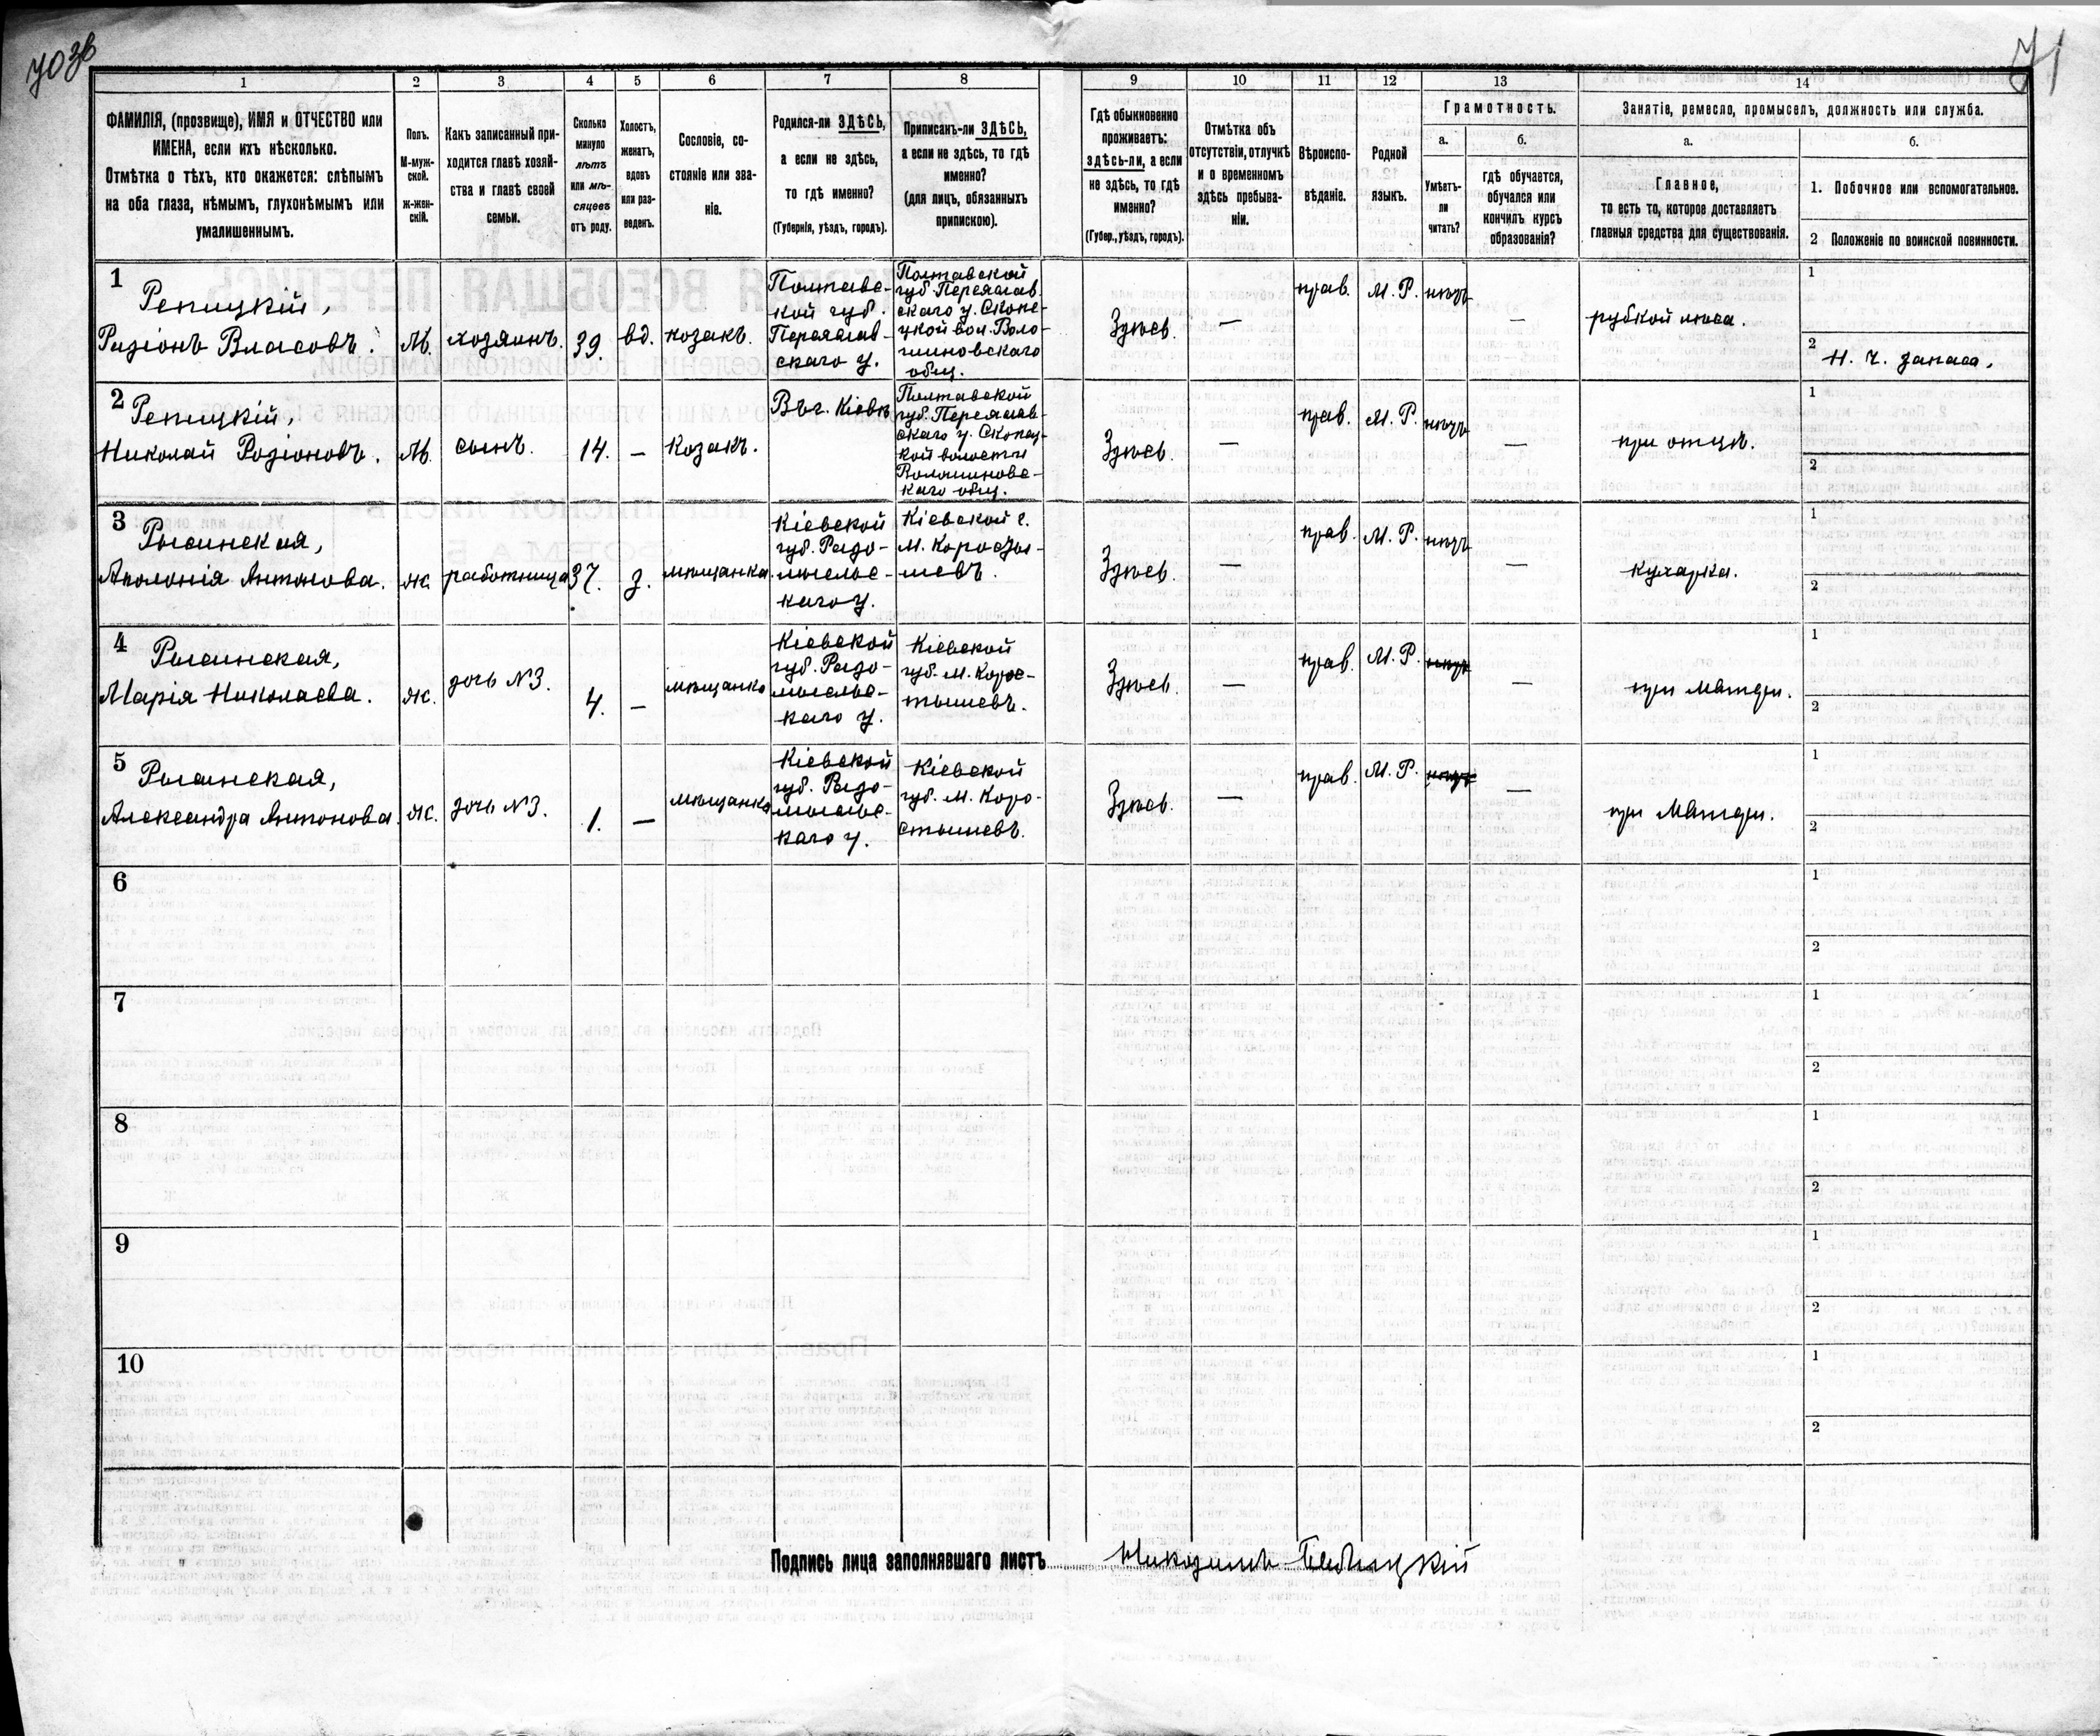 70зв
71
1
2
3
4
5
6
7
8
9
10
11
12
13
14
ФАМИЛІЯ, (прозвище), ИМЯ и ОТЧЕСТВО или
ИМЕНА, если ихъ нѣсколько.
Отмѣтка о тѣхъ, кто окажется: слѣпымъ
на оба глаза, нѣмымъ, глухонѣмымъ или
умалишеннымъ.
Полъ.
М-муж-
ской.
Ж-жен-
скій.
Какъ записанный при-
ходится главѣ хозяй-
ства и главѣ своей
семьи.
Сколько
минуло
лѣтъ
или мѣ-
сяцевъ
отъ роду.
Холостъ,
женатъ,
вдовъ
или раз-
веденъ.
Сословіе, со-
стояніе или зва-
ніе.
Родился-ли ЗДѢСЬ,
а если не здѣсь,
то гдѣ именно?
(Губернія, уѣздъ, городъ).
Приписанъ-ли ЗДѢСЬ,
а если не здѣсь, то гдѣ
именно?
(для лицъ, обязанныхъ
припискою).
Гдѣ обыкновенно
проживаетъ:
здѣсь-ли, а если
не здѣсь, то гдѣ
именно?
(Губер., уѣздъ, городъ).
Отмѣтка объ
отсутствіи, отлучкѣ
и о временномъ
здѣсь пребыва-
ніи.
Вѣроиспо-
вѣданіе.
Родной
языкъ.
Грамотность.
а.
Умѣетъ-
ли
читать?
б.
гдѣ обучается,
обучался или
кончилъ курсъ
образованія?
Занятіе, ремесло, промыселъ, должность или служба.
а.
Главное,
то есть то, которое доставляетъ
главныя средства для существованія.
б.
1. Побочное или вспомогательное.
2 Положеніе по воинской повинности.
1
Репицкій,
Родіонъ Власовъ.
М.
хозяинъ.
39.
вд.
козакъ.
Полтавс-
кой губ.
Переяслав-
скаго у.
Полтавской
губ. Переяслав
скаго у. Скопе-
цкой вол. Воло-
шиновскаго
общ.
Здѣсь.
—
прав.
М. Р.
нѣтъ
—
рубкой лѣса.
1
2
Н. Ч. запаса.
2
Репицкій,
Николай Родіоновъ.
М.
сынъ.
14.
—
Козакъ.
Въ г. Кіевѣ
Полтавской
губ. Переяслав-
скаго у. Скопец-
кой волости
Волошиновс-
каго общ.
Здѣсь.
—
прав.
М. Р.
нѣтъ
—
при отцѣ.
1
2
3
Аполонія Антонова.
ж.
работница
37.
з.
мѣщанка.
Кіевской
губ. Радо-
мысльс-
каго у.
Кіевской г.
Здѣсь.
—
прав.
М. Р.
нѣтъ
—
кухарка.
1
2
4
Марія Николаева.
ж.
дочь №3.
4.
—
мѣщанка
Кіевской
губ. Радо-
мысльс-
каго у.
Кіевской
губ. М. Корос-
тышевъ.
Здѣсь.
—
прав.
М. Р.
нѣтъ
—
при матери.
1
2
5
Александра Антонова.
ж.
дочь №3.
1.
—
мѣщанка
Кіевской
губ. Радо-
мысльс-
каго у.
Кіевской
губ. М. Коро-
стышевъ.
Здѣсь.
—
прав.
М. Р.
нѣтъ
—
при матери.
1
2
6
1
2
7
1
2
8
1
2
9
1
2
10
1
2
Подпись лица заполнявшаго листъ Никодимъ